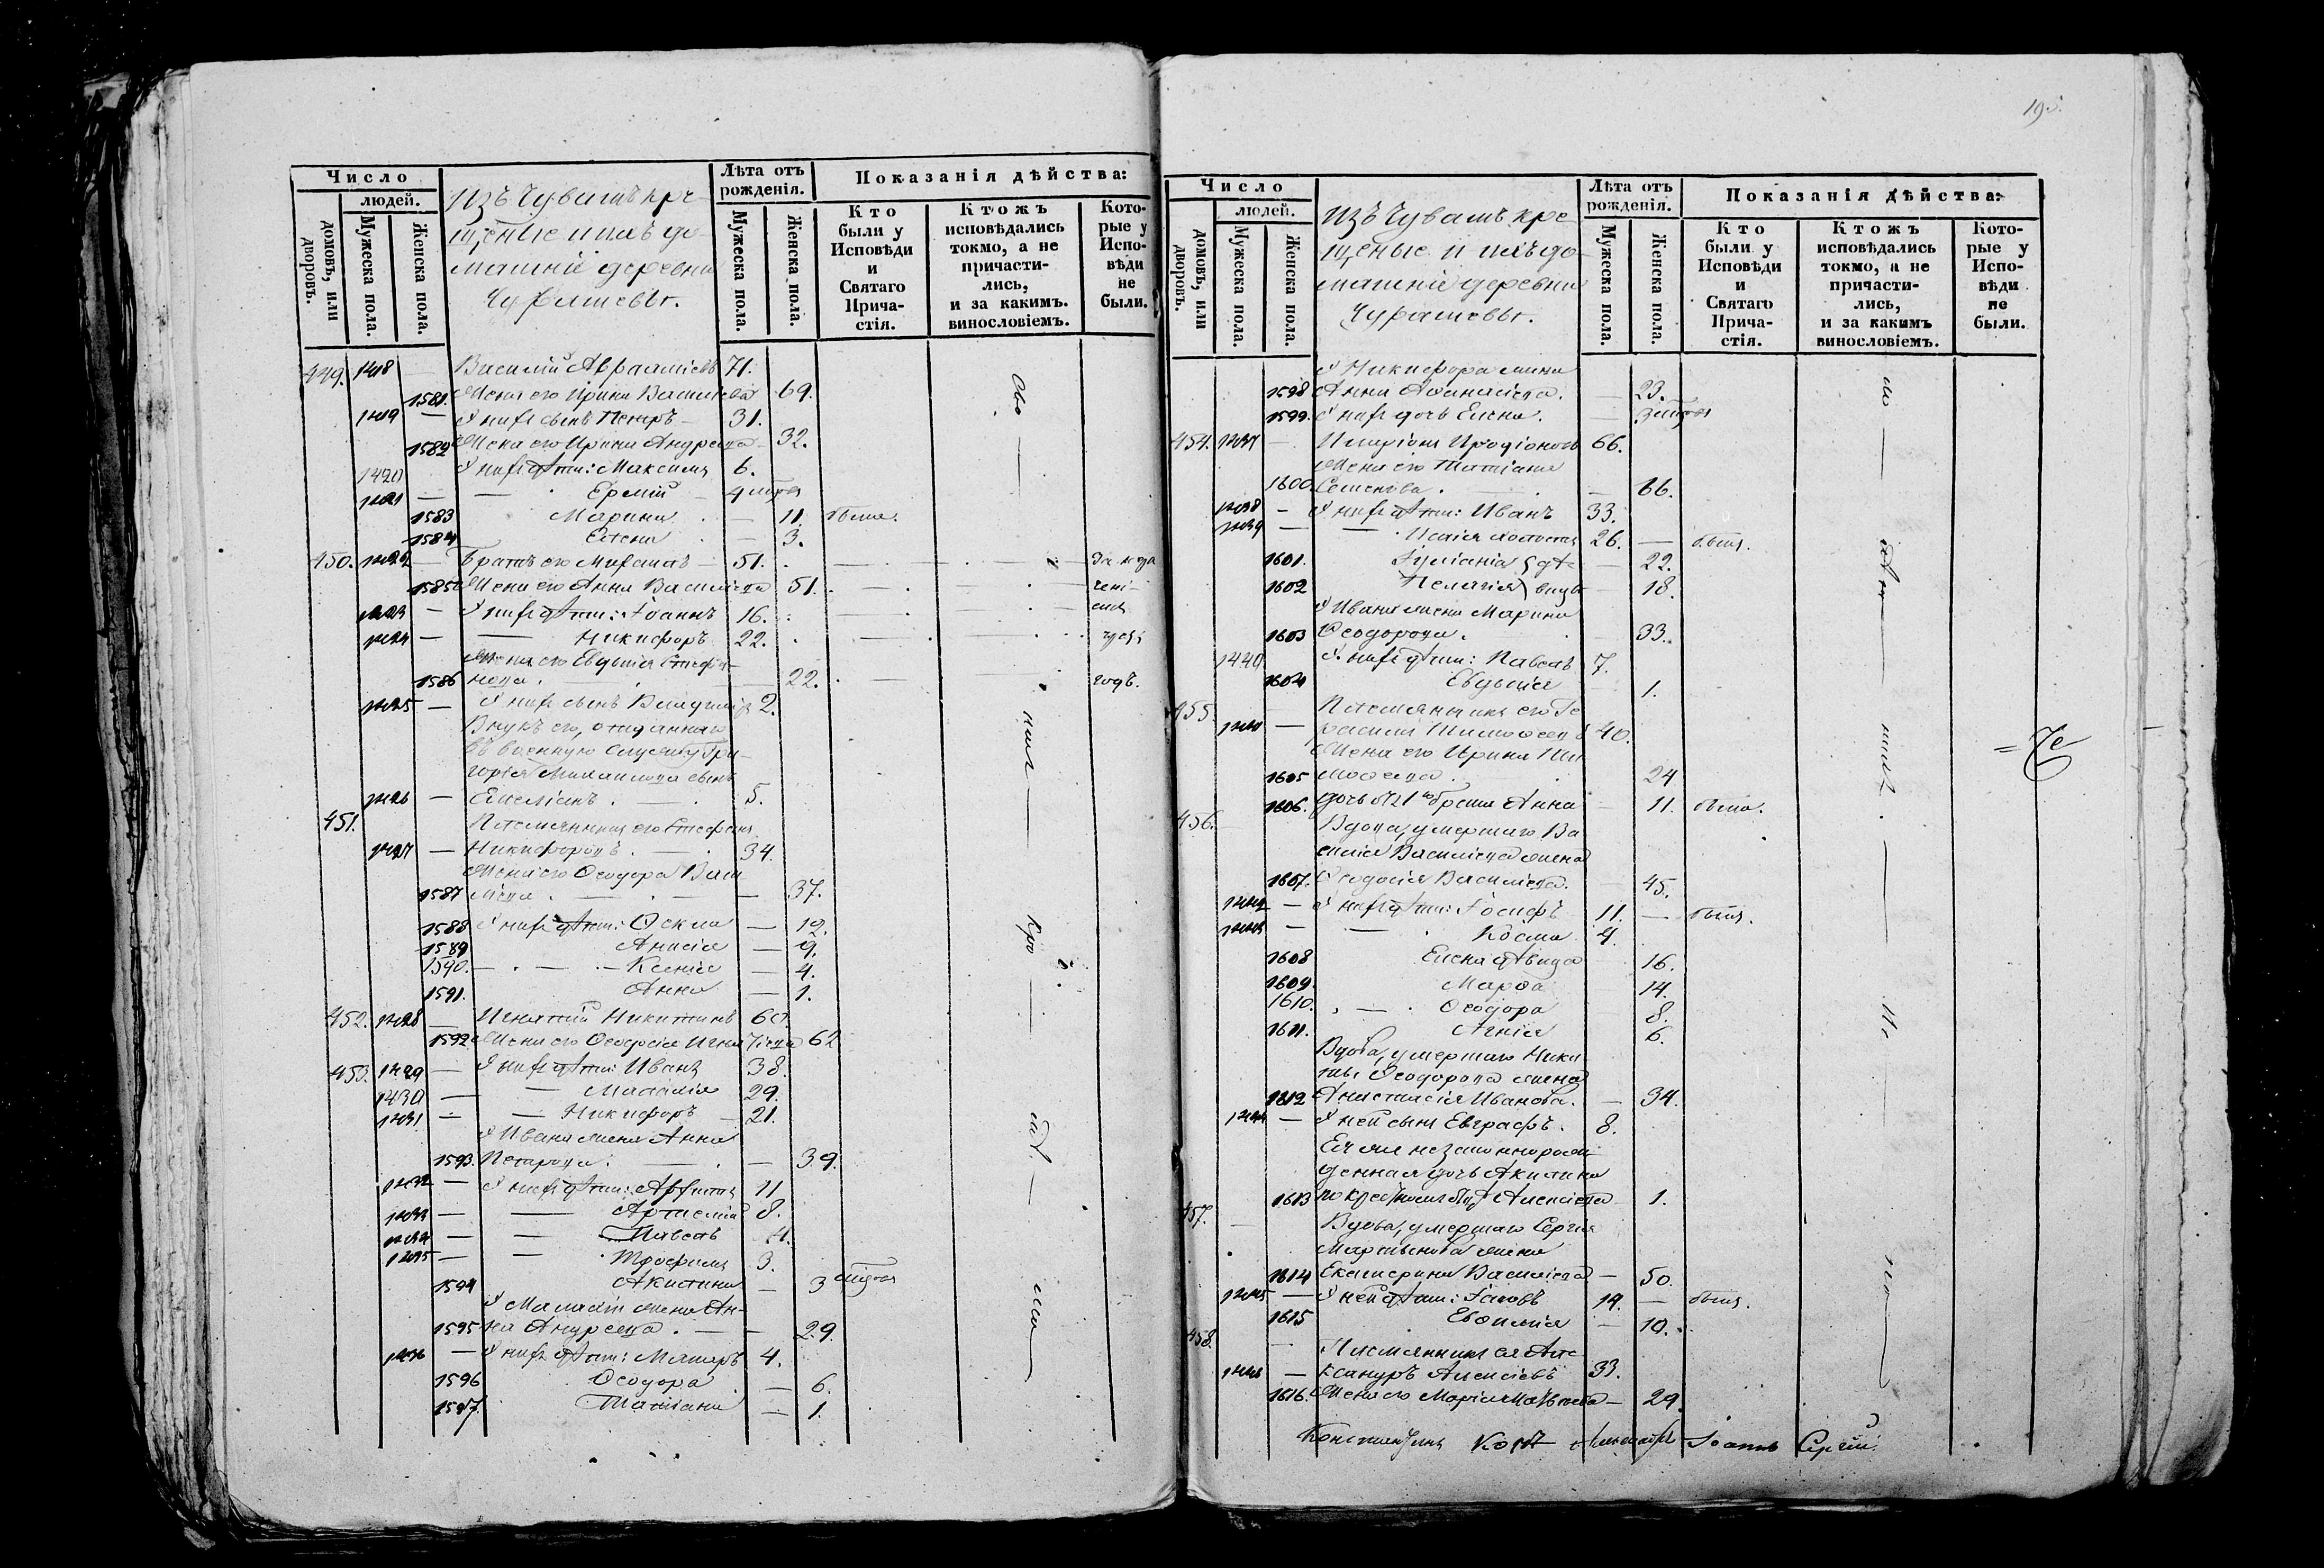 Число
людей.
домовъ, или дворовъ.
Мужеска пола.
Женска пола.
Изъ Чувашъ кре-
щеные и ихъ до-
машніе деревни
Чурашевы.
Лѣта отъ рожденія.
Мужеска пола.
Женска пола.
Показанія дѣйства:
Кто были у Исповѣди и Святаго Прича-стія.
Ктожъ исповѣдались токмо, а не причасти-лись, и за какимъ. винословіемъ.
Кото-рые у Испо-вѣди не были.
449. 1418 Василій 71.
1581. Жена его Ирина Васильева 69.
1419 У нихъ сынъ Петръ 31.
1582 Жена его Ирина Андреева 32.
1420 У нихъ дѣти: Максимъ 6.
1421 Еремій 4
1583 Марина 11. была.
1584 Елена 3.
450. 1422 Братъ его 51.
1585 Жена его Анна Васильева 51.
1423 У нихъ дѣти: Іоаннъ 16.
1424 Никифоръ 22.
Жена его Евдокія Стефа-
1586 нова. 22. годъ.
1425 У нихъ сынъ Владиміръ 2.
Внукъ его, отданнаго
въ военную службу Гри-
горія Михаилова сынъ
1426 Емеліанъ. 5.
451. Племянникъ его Стефанъ
1427 Никифоровъ. 34.
Жена его Ѳеодора Васи-
1587 ліева. 37.
1588 У нихъ дѣти: Ѳекла 12.
1589 Анисія 9.
1590. Ксенія 4.
1591. Анна 1.
452. 1428 Игнатій Никитинъ 60.
1592 Жена его Ѳеодосія Игнатіева 62
453. 1429 У нихъ дѣти: Иванъ 38.
1430 29.
1431 Никифоръ 21.
У Ивана жена Анна
1593. Петрова. 39.
1432 У нихъ дѣти: 11
1433 Артемій 8.
1434 Павелъ 4.
1435 Трофимъ 3.
1594 3
У жена Ан-
1595 на Андреева. 29.
1436 У нихъ дѣти: 4.
1596 Ѳеодора 6.
1597. Татіана 1.
195.
Число
людей.
домовъ, или дворовъ.
Мужеска пола.
Женска пола.
Изъ Чувашъ кре-
щеные и ихъ до-
машніе деревни
Чурашевы.
Лѣта отъ рожденія.
Мужеска пола.
Женска пола.
Показанія дѣйства:
Кто были у Исповѣди и Святаго Прича-стія.
Ктожъ исповѣдались токмо, а не причасти-лись, и за какимъ винословіемъ.
Кото-рые у Испо-вѣди не были.
У Никифора жена
1598 Анна Аѳанасіева. 23.
1599. У нихъ дочь Елена. 3
454. 1437 Иларіонъ Иродіоновъ 66.
Жена его Татіана
1600 Семенова. 66.
1438 У нихъ дѣти: Иванъ 33.
1439 холостъ 26. былъ.
1601. Іуліанія дѣ- 22.
1602 Пелагія вицы 18.
У Ивана жена Марина
1603 Ѳеодорова. 33.
1440 У нихъ дѣти: Павелъ 7.
1604 Евдокія 1.
455. Племянникъ его Ге-
1441 расимъ Тимоѳеевъ 40.
Жена его Ирина Ти-
1605 моѳеева. 24
1606. дочь отъ 1го брака Анна 11. была.
456. Вдова, умершаго Ва-
силія Васильева жена
1607. Ѳеодосія Васильева. 45.
1442 У нихъ дѣти: Іосифъ 11. былъ.
1443 Косма 4.
1608 Елена дѣвица 16.
1609. Марѳа 14.
1610. Ѳеодора 8.
1611. Агнія 6.
Вдова, умершаго Ники-
ты Ѳеодорова жена
1612 Анастасія Иванова. 34.
1444 У ней сынъ Евграфъ. 8.
Ея же незаконнорож-
денная дочь Акилина
1613 Алексіева 1.
457. Вдова, умершаго Сергія
Мартынова жена
1614 Екатерина Васильева 50.
1445 У ней дѣти: Іаковъ 14. былъ.
1615 Евѳимія 10.
458. Племянникъ ея Але-
1446 ксандръ Алексіевъ 33.
1616. Жена его Марія Матвѣева 29.
Іоаннъ Сергій